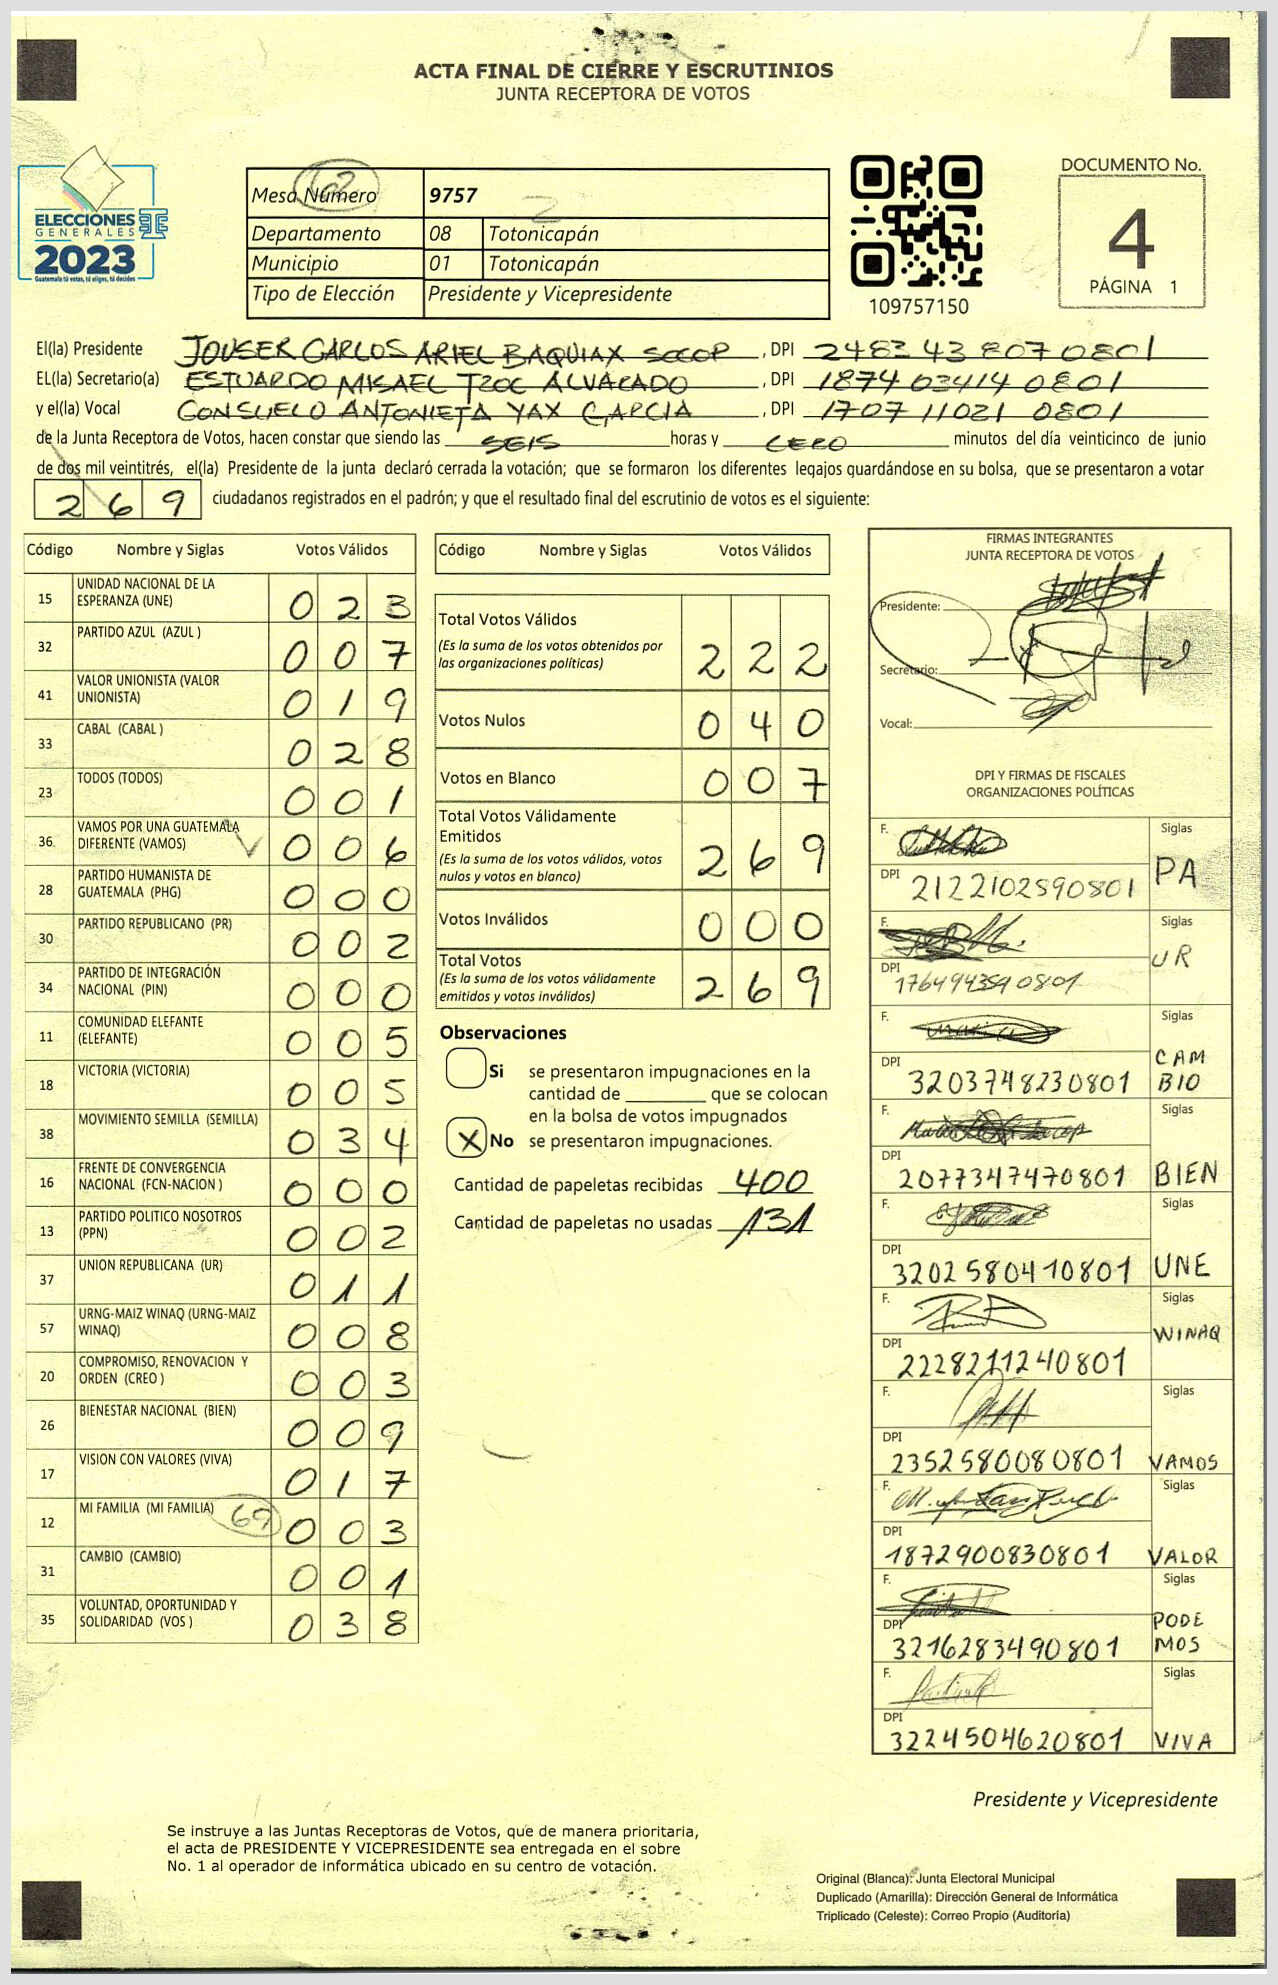 ACTA FINAL DE CIERRE Y ESCRUTINIOS
JUNTA RECEPTORA DE VOTOS
ELECCIONES
GENERALES
2023
Guatemala tú votas, tú eliges, tú decides
Mesa Número 9757
Departamento 08 Totonicapán
Municipio 01 Totonicapán
Tipo de Elección Presidente y Vicepresidente
109757150
DOCUMENTO No.
4
PÁGINA 1
El(la) Presidente JOUSER CARLOS ARIEL BAQUIAX SOCOP, DPI 2483 43 8070801
EL(la) Secretario(a) ESTUARDO MISAEL TZOC ALVARADO, DPI 1874 03414 0801
y el(la) Vocal CONSUELO ANTONIETA YAX GARCIA, DPI 1707 11021 0801
de la Junta Receptora de Votos, hacen constar que siendo las SEIS horas y CERO minutos del día veinticinco de junio
de dos mil veintitrés, el(la) Presidente de la junta declaró cerrada la votación; que se formaron los diferentes legajos guardándose en su bolsa, que se presentaron a votar
269 ciudadanos registrados en el padrón; y que el resultado final del escrutinio de votos es el siguiente:
Código Nombre y Siglas Votos Válidos
15 UNIDAD NACIONAL DE LA ESPERANZA (UNE) 023
32 PARTIDO AZUL (AZUL ) 007
41 VALOR UNIONISTA (VALOR UNIONISTA) 019
33 CABAL (CABAL ) 028
23 TODOS (TODOS) 001
36 VAMOS POR UNA GUATEMALA DIFERENTE (VAMOS) 006
28 PARTIDO HUMANISTA DE GUATEMALA (PHG) 000
30 PARTIDO REPUBLICANO (PR) 002
34 PARTIDO DE INTEGRACIÓN NACIONAL (PIN) 000
11 COMUNIDAD ELEFANTE (ELEFANTE) 005
18 VICTORIA (VICTORIA) 005
38 MOVIMIENTO SEMILLA (SEMILLA) 034
16 FRENTE DE CONVERGENCIA NACIONAL (FCN-NACION ) 000
13 PARTIDO POLITICO NOSOTROS (PPN) 002
37 UNION REPUBLICANA (UR) 011
57 URNG-MAIZ WINAQ (URNG-MAIZ WINAQ) 008
20 COMPROMISO, RENOVACION Y ORDEN (CREO ) 003
26 BIENESTAR NACIONAL (BIEN) 009
17 VISION CON VALORES (VIVA) 017
12 MI FAMILIA (MI FAMILIA) 69 003
31 CAMBIO (CAMBIO) 001
35 VOLUNTAD, OPORTUNIDAD Y SOLIDARIDAD (VOS ) 038
Código Nombre y Siglas Votos Válidos
Total Votos Válidos
(Es la suma de los votos obtenidos por
las organizaciones políticas) 222
Votos Nulos 040
Votos en Blanco 007
Total Votos Válidamente
Emitidos
(Es la suma de los votos válidos, votos
nulos y votos en blanco) 269
Votos Inválidos 000
Total Votos
(Es la suma de los votos válidamente
emitidos y votos inválidos) 269
Observaciones
Si se presentaron impugnaciones en la
cantidad de ________ que se colocan
en la bolsa de votos impugnados
X No se presentaron impugnaciones.
Cantidad de papeletas recibidas 400
Cantidad de papeletas no usadas 131
FIRMAS INTEGRANTES
JUNTA RECEPTORA DE VOTOS
Presidente:
Secretario:
Vocal:
DPI Y FIRMAS DE FISCALES
ORGANIZACIONES POLÍTICAS
F. Siglas
DPI 2122102590801 PA
F. Siglas
DPI 1764943590801 UR
F. Siglas
DPI 3203748230801 CAMBIO
F. Siglas
DPI 2077347470801 BIEN
F. Siglas
DPI 3202580410801 UNE
F. Siglas
DPI 2228211240801 WINAQ
F. Siglas
DPI 2352580080801 VAMOS
F. Siglas
DPI 1872900830801 VALOR
F. Siglas
DPI 3216283490801 PODEMOS
F. Siglas
DPI 3224504620801 VIVA
Presidente y Vicepresidente
Se instruye a las Juntas Receptoras de Votos, que de manera prioritaria,
el acta de PRESIDENTE Y VICEPRESIDENTE sea entregada en el sobre
No. 1 al operador de informática ubicado en su centro de votación.
Original (Blanca): Junta Electoral Municipal
Duplicado (Amarilla): Dirección General de Informática
Triplicado (Celeste): Correo Propio (Auditoria)